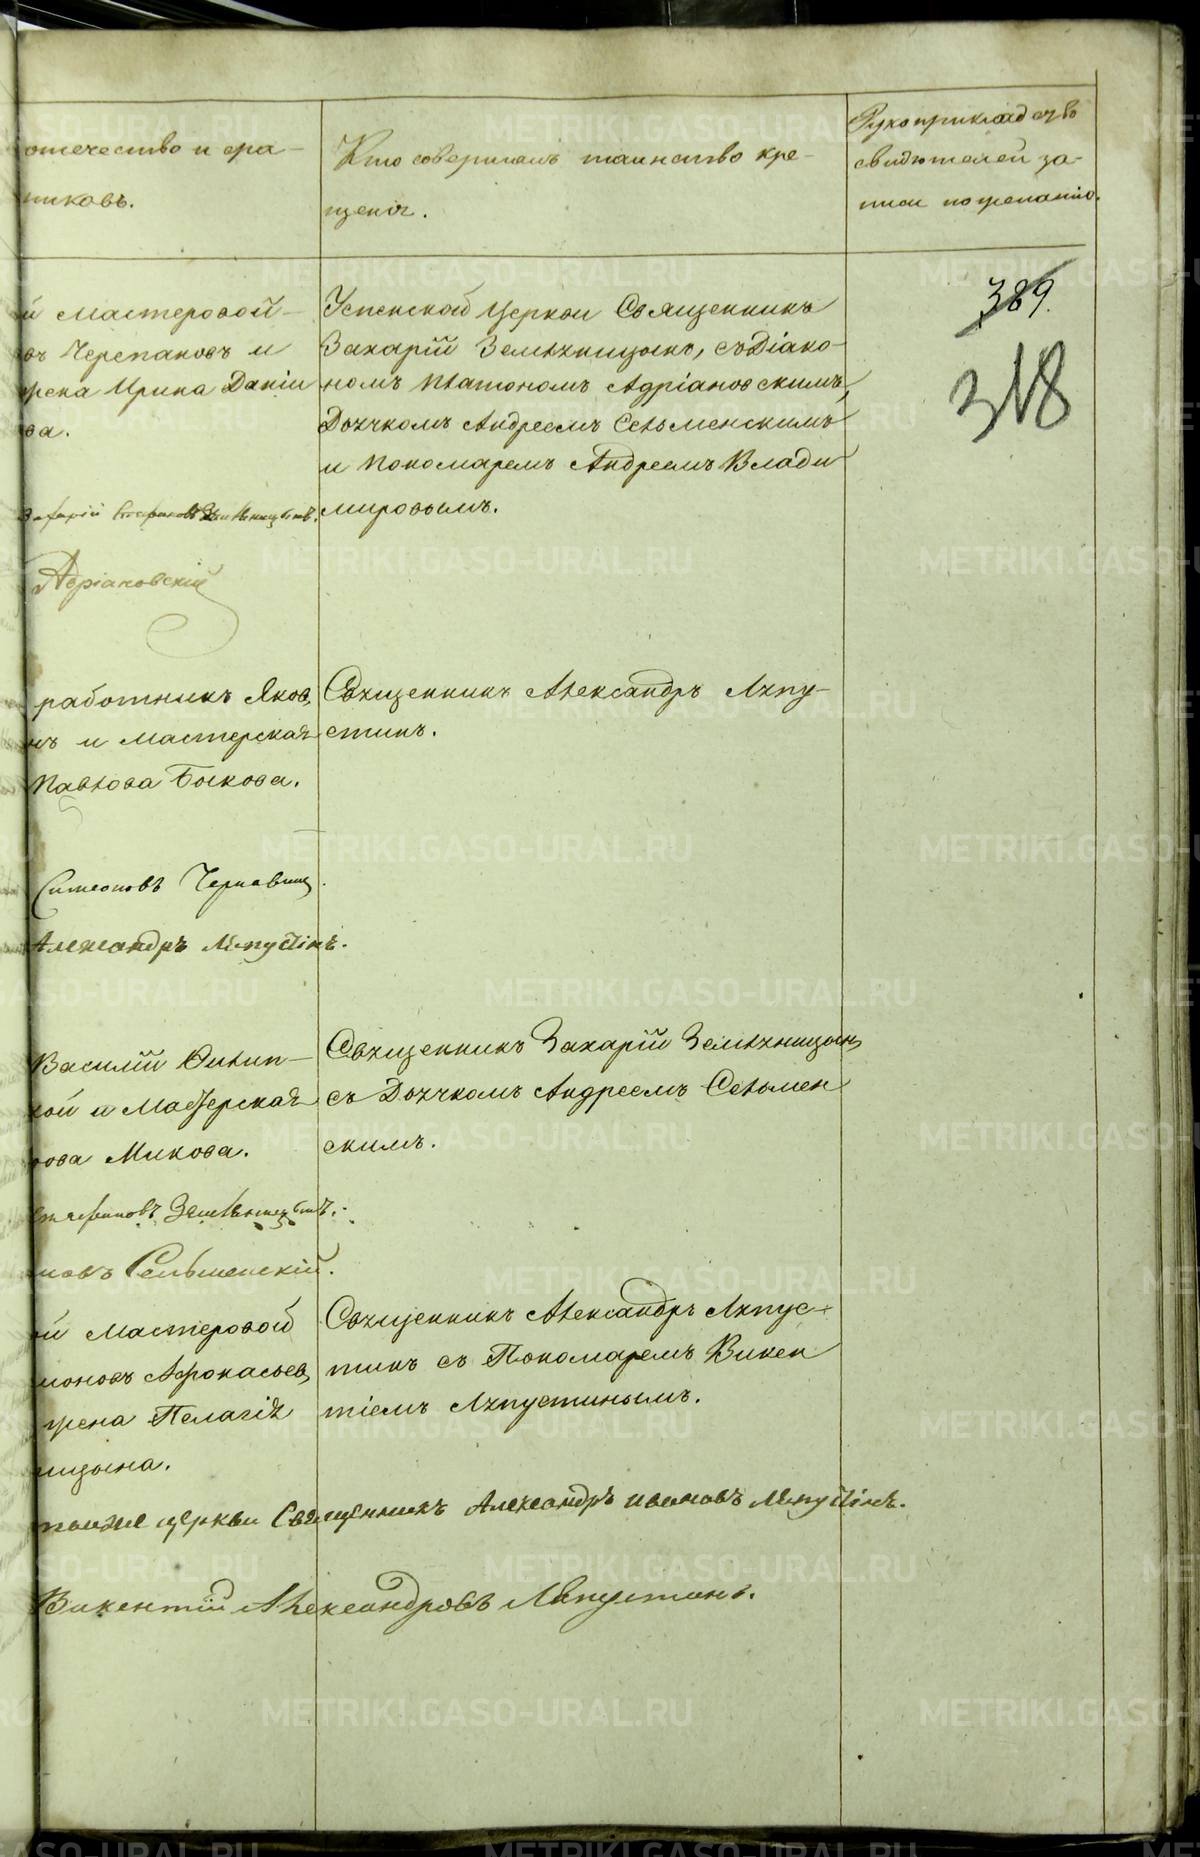 отечество и фа-
Кто совершалъ таинство кре-
Рукоприкладство
свидѣтелей за-
миликовъ.
щенія.
писи по желанію.
389.
318
й Мастеровой
въ Черепановъ и
жена Ирина Даніи
ва.
Успенской Церкви Священникъ
Захарій Земляницынъ, съ Діако-
номъ Платономъ Адріановскимъ,
Дьячкомъ Андреемъ Сельменскимъ
и Пономаремъ Андреемъ Влади
мировымъ.
Захарій Стефановъ Земляницынъ.
Адріановскій
работникъ Яков
нъ и Мастерская
Павлова Быкова.
Священникъ Александръ Ляпу-
стинъ.
Симеоновъ Чернавин
Александръ Ляпустинъ.
Василій Филип-
кой и Мастерская
рова Микова.
Священникъ Захарій Земляницын
съ Дьячкомъ Андреемъ Сельмен
скимъ.
Стефановъ Земляницынъ.
новъ Сельменскій.
ой Мастеровой
моновъ Афонасьев
жена Пелагія
ицына.
Священникъ Александръ Ляпус-
тинъ съ Пономаремъ Викен
тіемъ Ляпустинымъ.
церкви Священникъ Александръ Ивановъ Ляпустинъ.
Викентій Александровъ Ляпустинъ.
METRIKI.GASO-URAL.RU